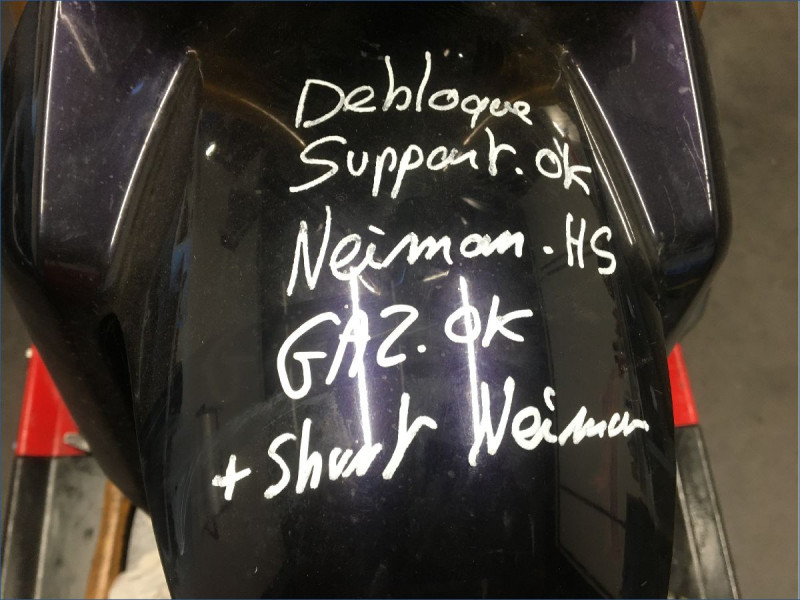 Debloque
Support. OK
Neiman. HS
GAZ. OK
+ Shunt Neiman